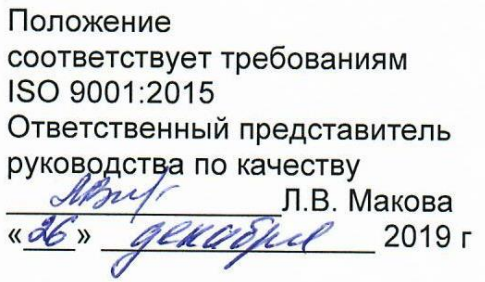 Положение
соответствует требованиям
ISO 9001:2015
Ответственный представитель
руководства по качеству
Л.В. Макова
«26» декабря 2019 г